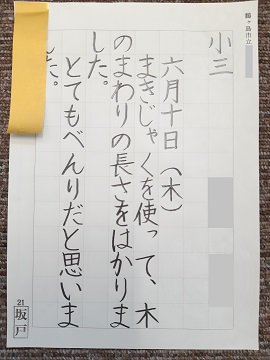 鶴ヶ島市立
小三
六月十日(木)
まきじゃくを使って、木
のまわりの長さをはかりま
した。
とてもべんりだと思いま
した。
21
坂戸